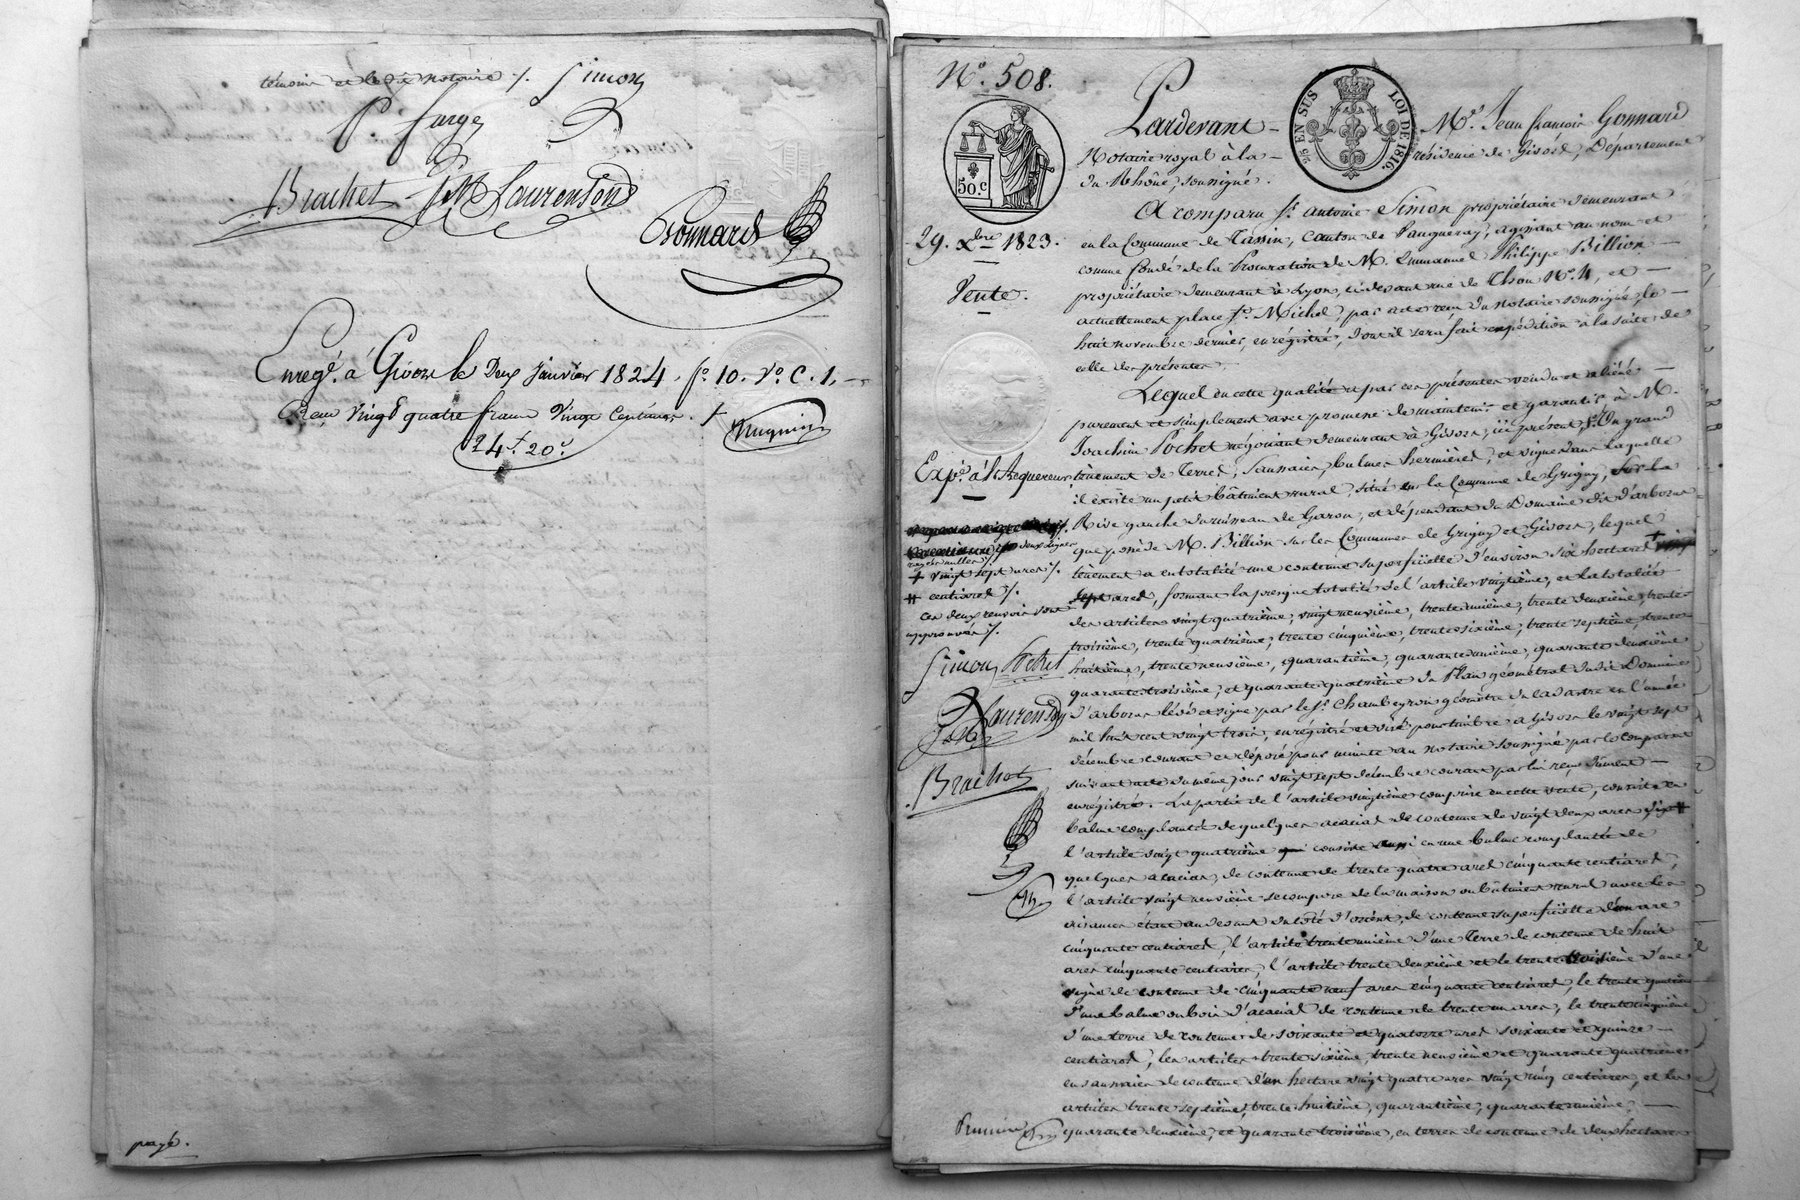 témoins et le dit notaire ./. Simon
P. Furge
Brachet JM Laurenson
Gonnard
Enregé. à Givors le Deux Janvier 1824. fo. 10. Vo. C. 1.
Reçu vingt quatre francs vingt centimes.
24f. 20c.
payé.
No. 508.
50.c
25 EN SUS LOI DE 1816.
29. Xbre 1823.
Vente.
Expon. à l'Acquereur
deux lignes
rayées nulles ./.
+ vingt sept ares ./.
# centiares ./.
ces deux renvois sont
approuvés ./.
Simon Pochet
Laurenson
Brachet
Premier
Pardevant Me. Jean françois Gonnard
Notaire royal à la résidence de Givors, Département
du Rhône, soussigné.
A comparu Sr. antoine Simon propriétaire demeurant
en la Commune de Tassin, Canton de Vaugneray, agissant au nom et
comme fondé de la Procuration de M. Emmanuel Philippe Billion
propriétaire demeurant à Lyon, ci-devant rue de Thou No. 4, et
actuellement place St. Michel, par acte reçu du notaire soussigné, le
huit novembre dernier, enrégistré, dont il sera fait expédition à la suite de
celle des présentes.
Lequel en cette qualité a par ces présentes vendu et aliéné
purement et simplement avec promesse de maintenir et garantir à M.
Joachim Pochet négociant demeurant à Givors, ici présent, Un grand
tènement de Terres, Saussaies, balmes hermières, et vignes dans laquelle
il existe un petit bâtiment rural, situé sur la Commune de Grigny, sur la
Rive gauche du ruisseau de Garon, et dépendant du Domaine dit d'arboras
que possède M. Billion sur les Communes de Grigny et Givors, lequel
tènement a en totalité une contenue superficielle d'environ six hectares +
ares, formant la presque totalité de l'article vingtième, et la totalité
des articles vingt quatrième, vingt neuvième, trente unième, trente deuxième, trente
troisième, trente quatrième, trente cinquième, trente sixième, trente septième, trente
huitième, trente neuvième, quarantième, quarante unième, quarante deuxième
quarante troisième, et quarante quatrième du Plan géométral dudit Domaine
d'arboras levé et signé par le Sr. Chambeyron géomètre du cadastre en l'année
mil huit cent vingt trois, enrégistré et visé pour timbre à Givors le vingt sept
décembre courant et déposé pour minute au notaire soussigné par le comparant
suivant acte du même jour vingt sept décembre courant par lui reçu, dûment
enrégistré. La partie de l'article vingtième comprise en cette vente, consiste en
balme complantée de quelques acacias de contenue de vingt deux ares dix #
l'article vingt quatrième consiste aussi en une balme complantée de
quelques acacias, de contenue de trente quatre ares cinquante centiares,
l'article vingt neuvième se compose de la maison ou bâtiment rural avec les
aisances étant au devant du côté d'orient, de contenue superficielle d'un are
cinquante centiares, l'article trente unième d'une Terre de contenue de huit
ares cinquante centiares, l'article trente deuxième et le trente troisième d'une
vigne de contenue de cinquante neuf ares cinquante centiares, le trente quatrième
d'une balme ou bois d'acacias de contenue de trente un ares, le trente cinquième
d'une terre de contenue de soixante et quatorze ares soixante et quinze
centiares, les articles trente sixième, trente neuvième et quarante quatrième
en saussaies de contenue d'un hectare vingt quatre ares vingt cinq centiares, et les
articles trente septième, trente huitième, quarantième, quarante unième,
quarante deuxième, et quarante troisième, en terres de contenue de deux hectares